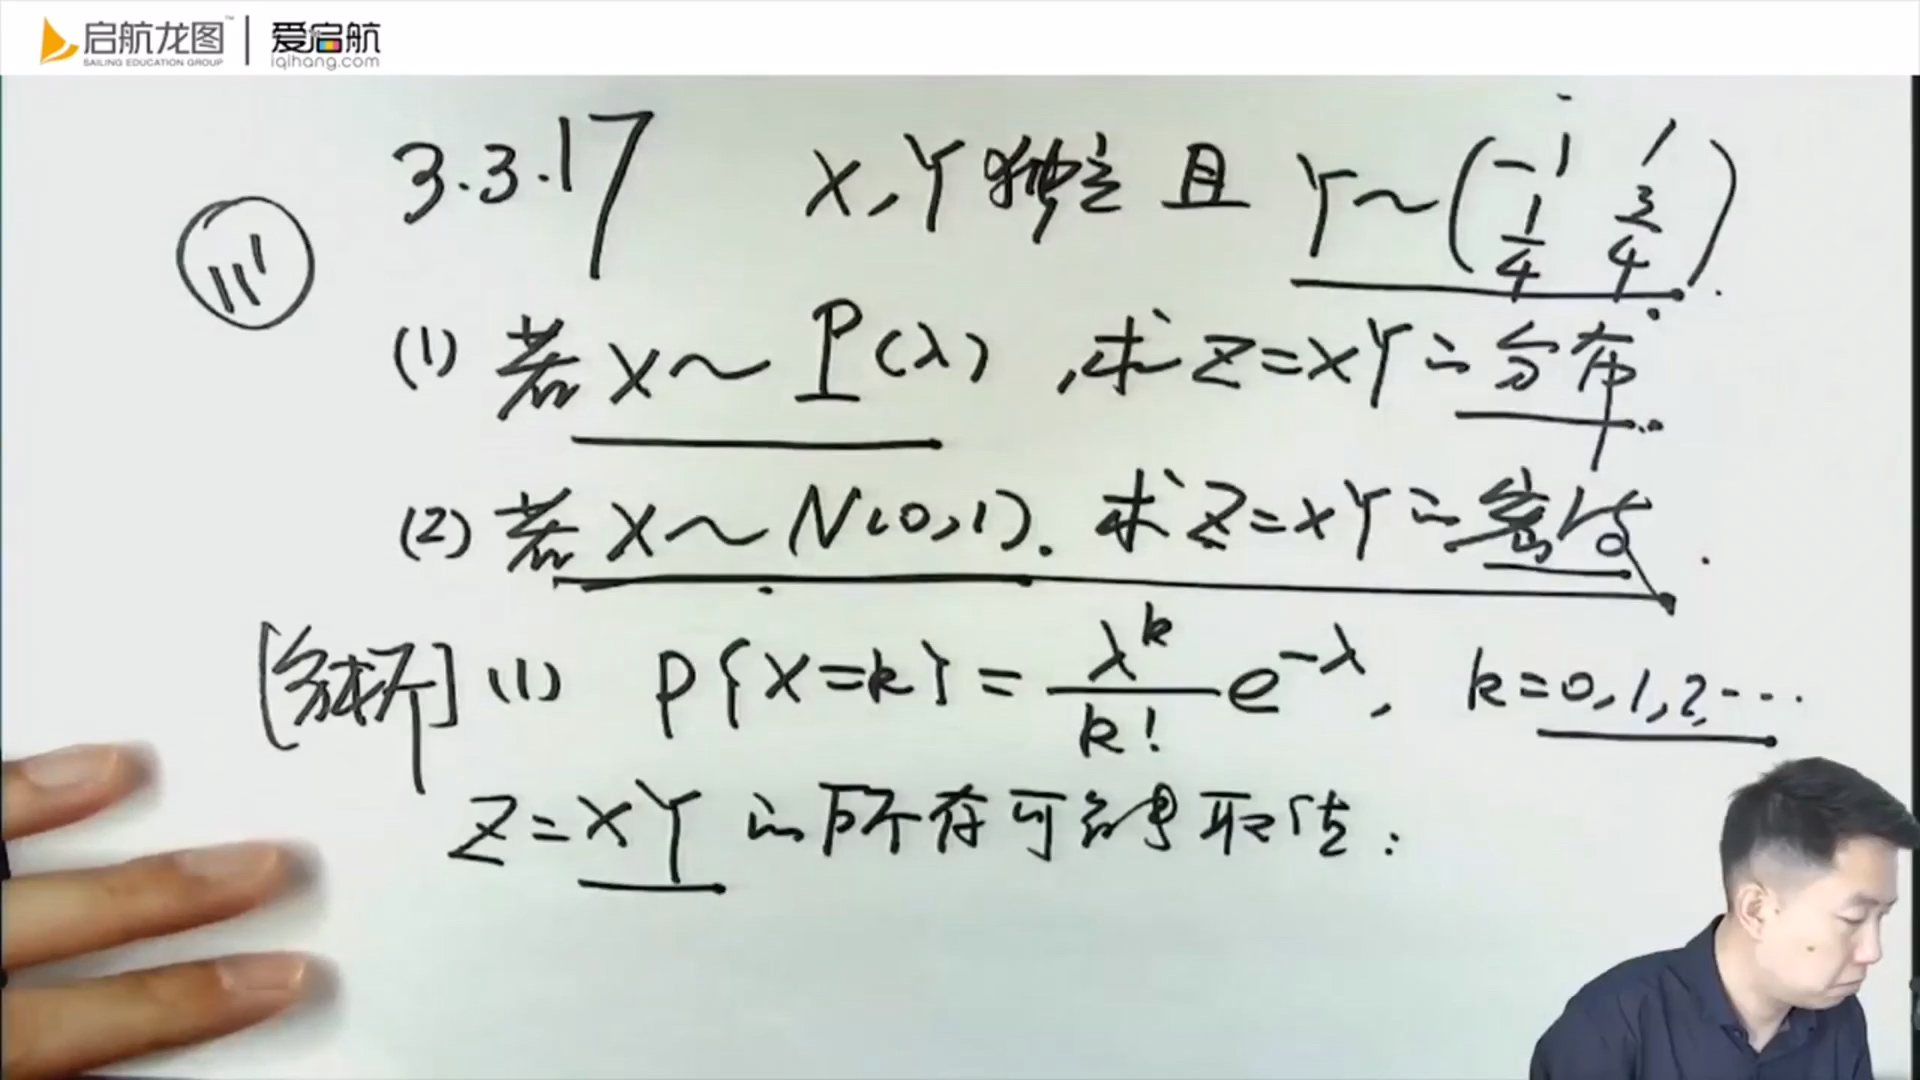 启航龙图™ | 爱启航
SAILING EDUCATION GROUP iqihang.com
3.3.17 X,Y独立 且 Y~(-1 1 1/4 3/4).
111
(1) 若 X~P(λ),求Z=XY的分布.
(2) 若 X~N(0,1). 求Z=XY的密度.
[分析] (1) P{X=k}=λ^k/k! e^-λ, k=0,1,2,...
Z=XY的所有可能取值: